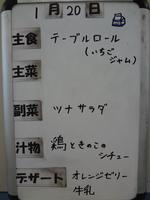 1月20日
主食 テーブルロール
(いちご
ジャム)
主菜
副菜 ツナサラダ
汁物 鶏ときのこの
シチュー
デザート オレンジゼリー
牛乳